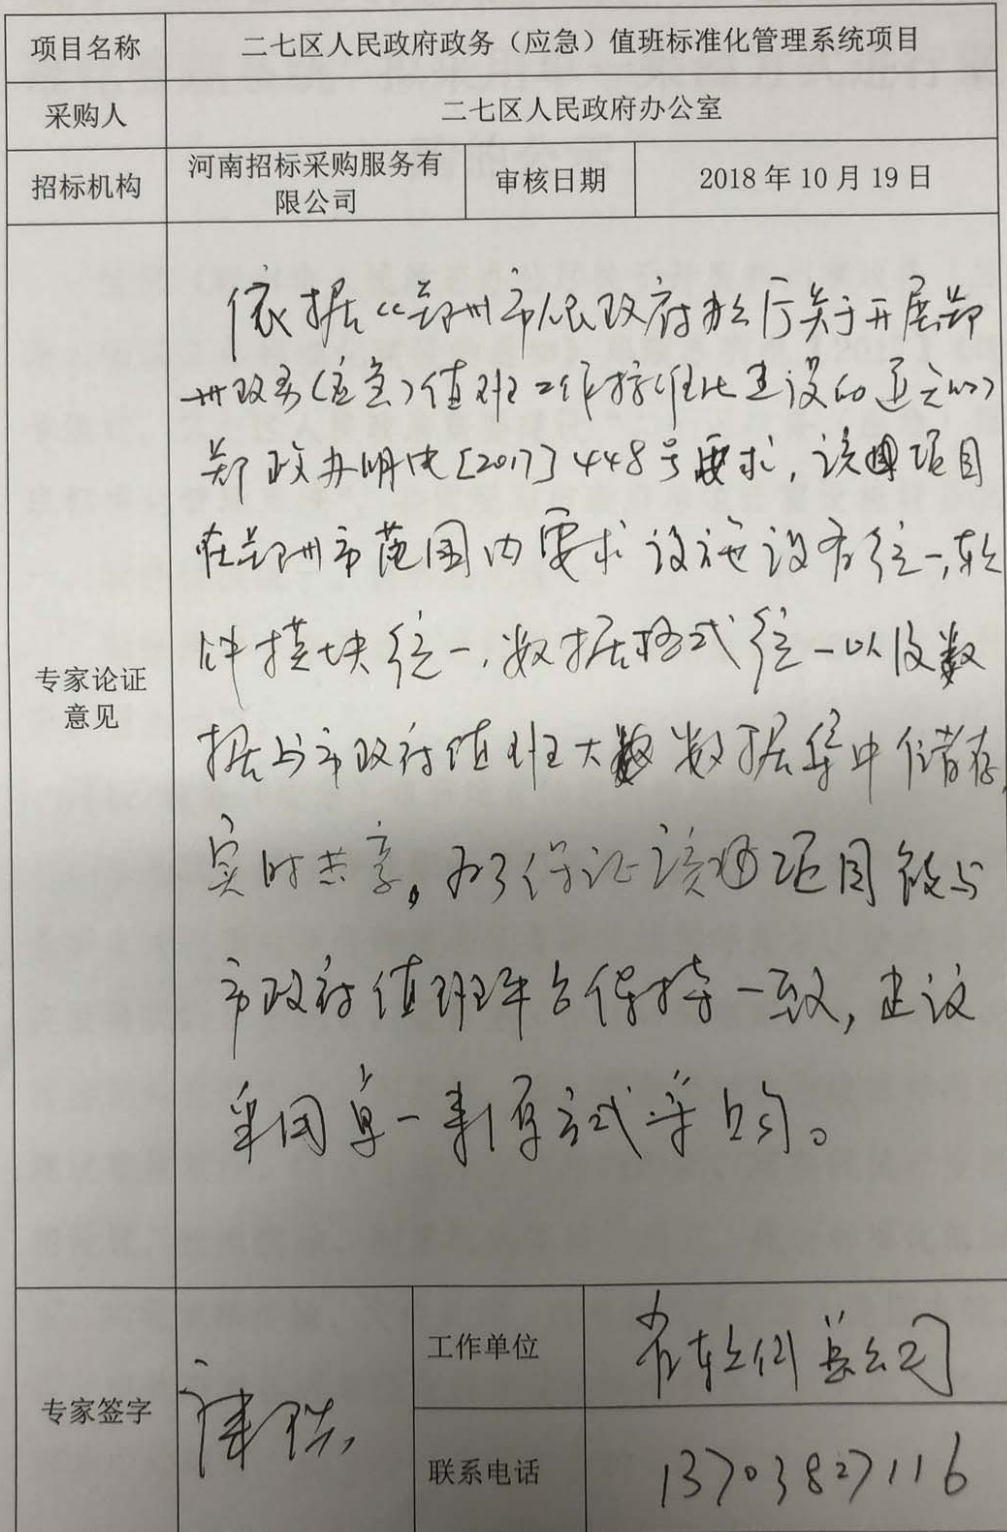 项目名称 二七区人民政府政务（应急）值班标准化管理系统项目
采购人 二七区人民政府办公室
招标机构 河南招标采购服务有限公司 审核日期 2018 年 10 月 19 日
专家论证意见
依据《郑州市人民政府办公厅关于开展郑
州政务（应急）值班工作标准化建设的通知》
郑政办明电[2017]448号要求，该项目
在郑州市范围内要求设施设备统一，软
件模块统一，数据格式统一以及数
据与市政府值班大数据集中储存，
实时共享。为了保证该项目能与
市政府值班平台保持一致，建议
采用单一来源方式采购。
专家签字
工作单位 省软件总公司
联系电话 13703827116